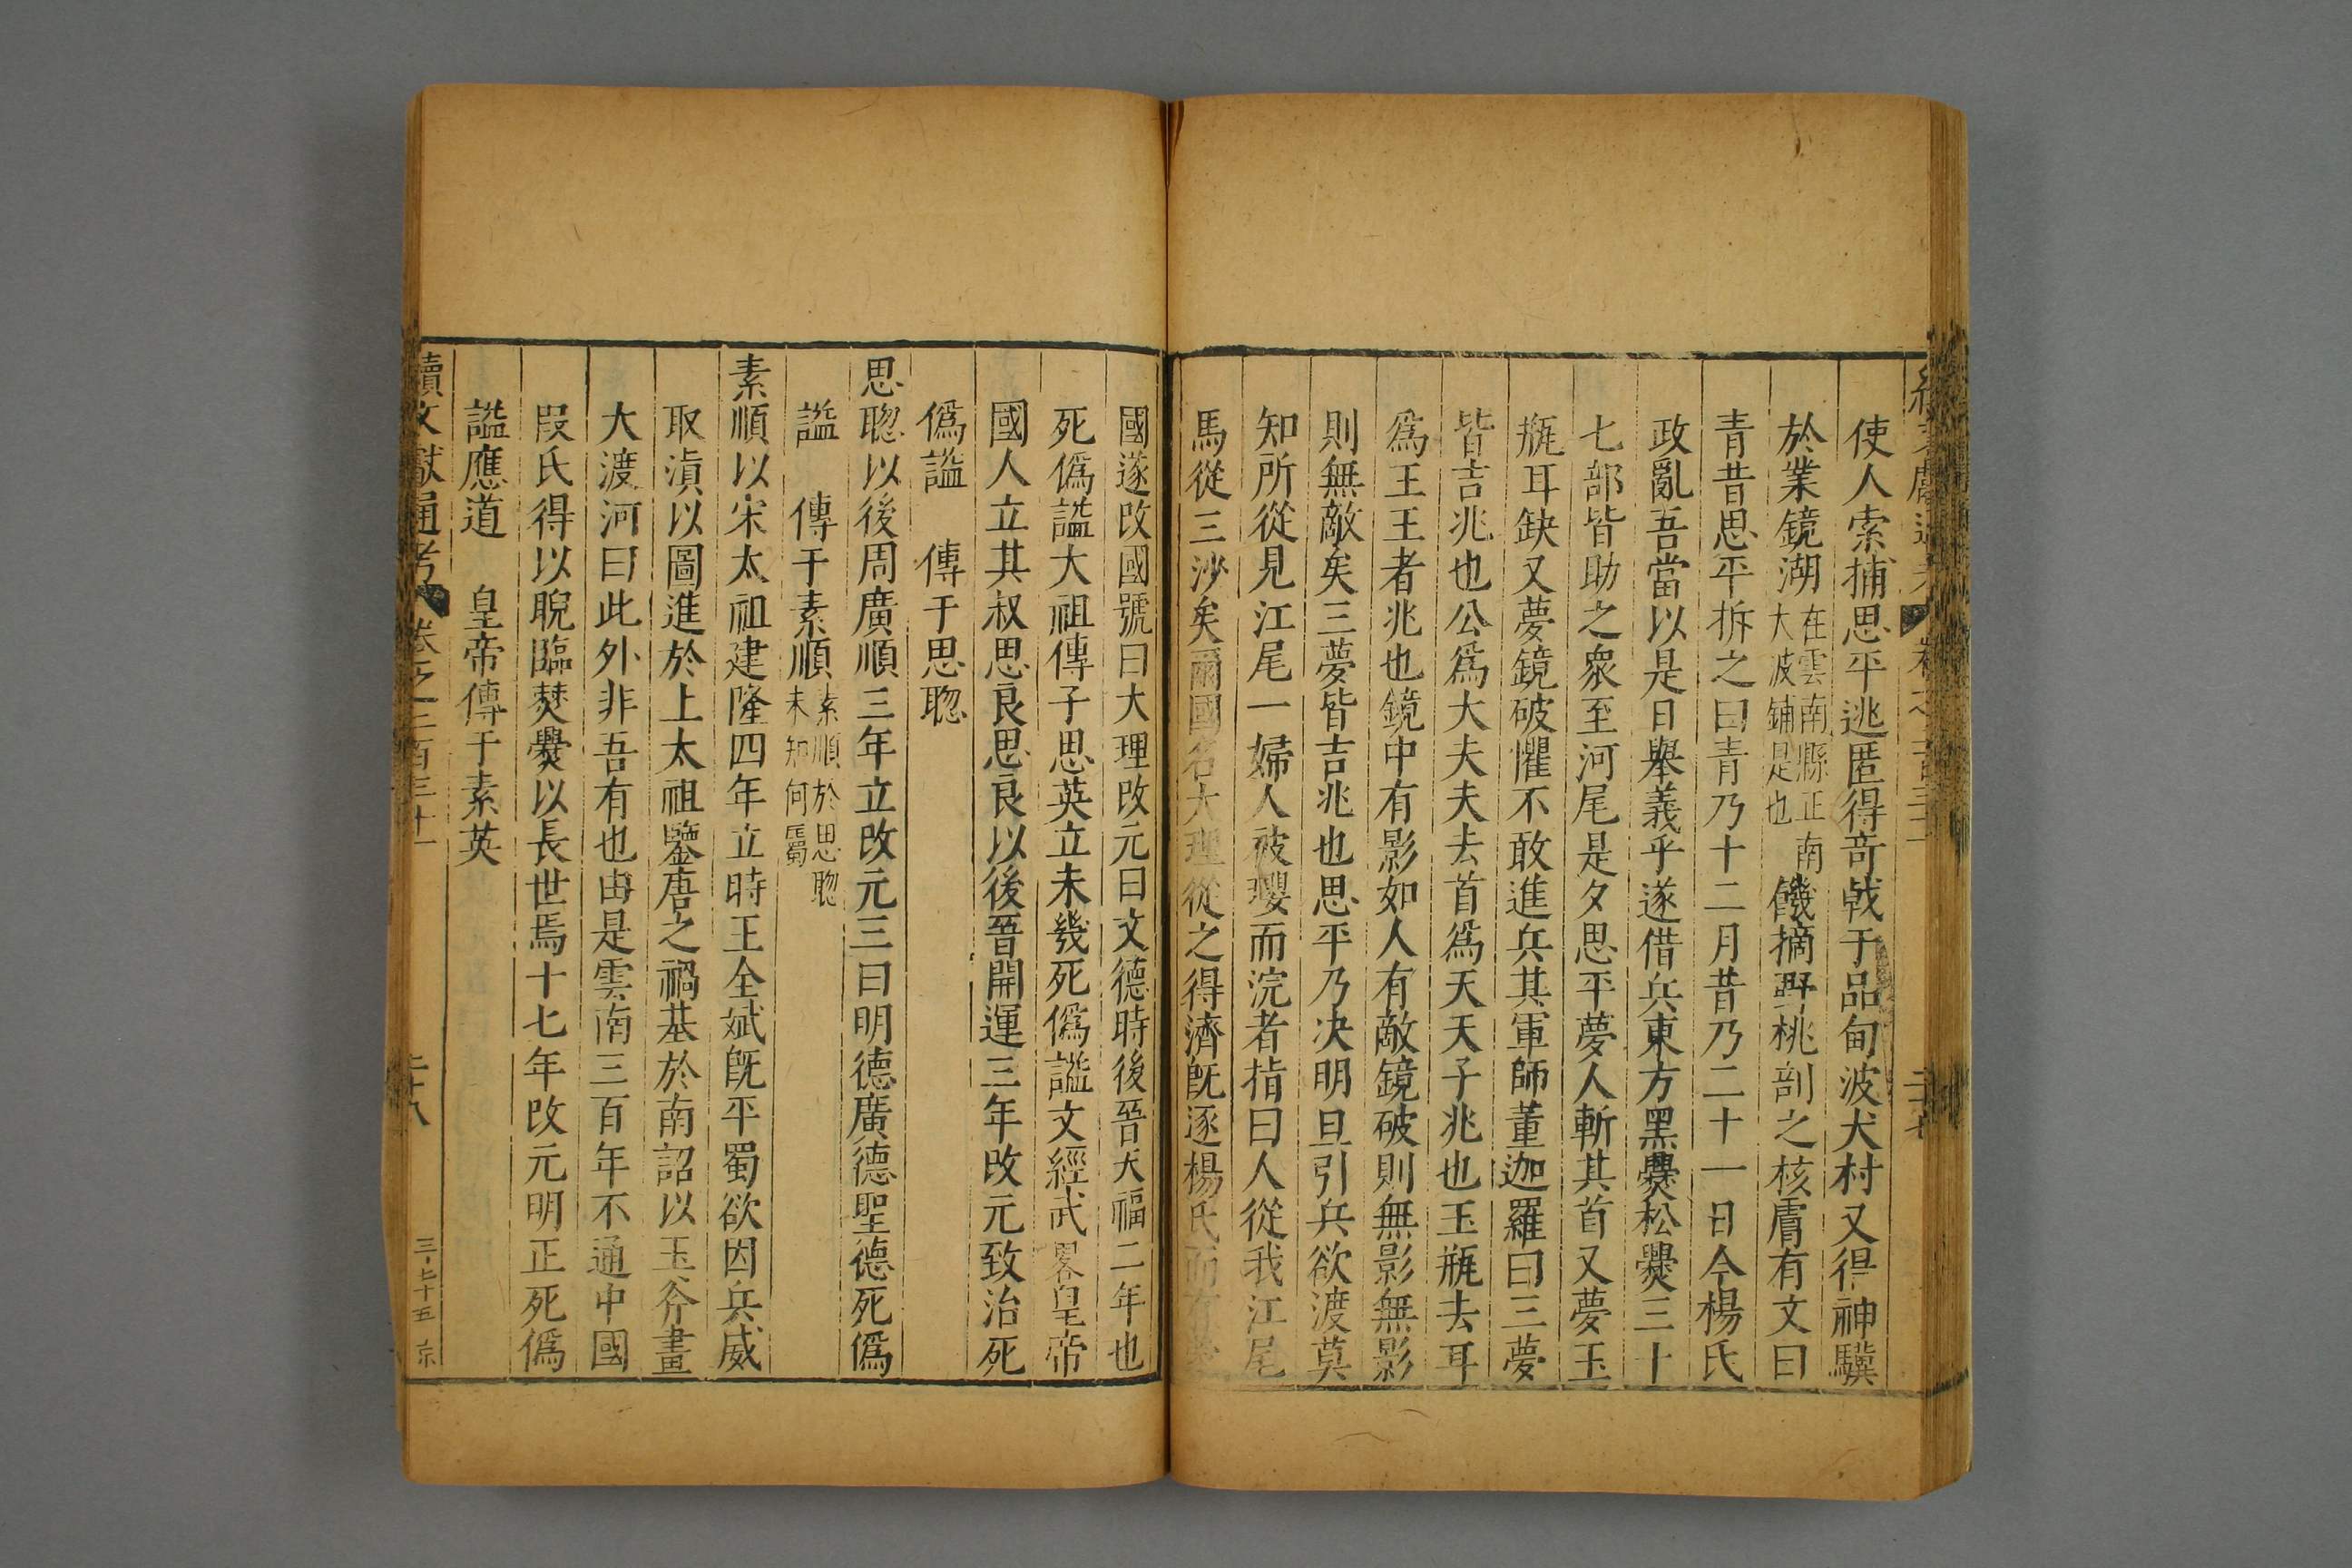 使人索捕思平逃匿得竒戟于品甸波犬村又得神驥
於業鏡湖在雲南縣正南大波鋪是也饑摘野桃剖之核膚有文曰
青昔思平拆之曰青乃十二月昔乃二十一日今楊氏
政亂吾當以是日舉義乎遂借兵東方黑爨松爨三十
七部皆助之衆至河尾是夕思平夢人斬其首又夢玉
瓶耳缺又夢鏡破懼不敢進兵其軍師董迦羅曰三夢
皆吉兆也公爲大夫夫去首爲天天子兆也玉瓶去耳
爲王王者兆也鏡中有影如人有敵鏡破則無影無影
則無敵矣三夢皆吉兆也思平乃决明旦引兵欲渡莫
知所從見江尾一婦人被瓔而浣者指曰人從我江尾
馬從三沙矣爾國名大理從之得濟旣逐楊氏而有
國遂改國號曰大理改元曰文德時後晉天福二年也
死僞謚大祖傳子思英立未幾死僞謚文經武畧皇帝
國人立其叔思良思良以後晉開運三年改元致治死
僞謚　傳于思聰
思聰以後周廣順三年立改元三曰明德廣德聖德死僞
謚　傳于素順素順於思聰未知何屬
素順以宋太祖建隆四年立時王全斌旣平蜀欲因兵威
取滇以圖進於上太祖鑒唐之禍基於南詔以玉斧畫
大渡河曰此外非吾有也由是雲南三百年不通中國
段氏得以睨臨僰爨以長世焉十七年改元明正死僞
謚應道　皇帝傳于素英
續文獻通考　卷之二百三十一　二十八